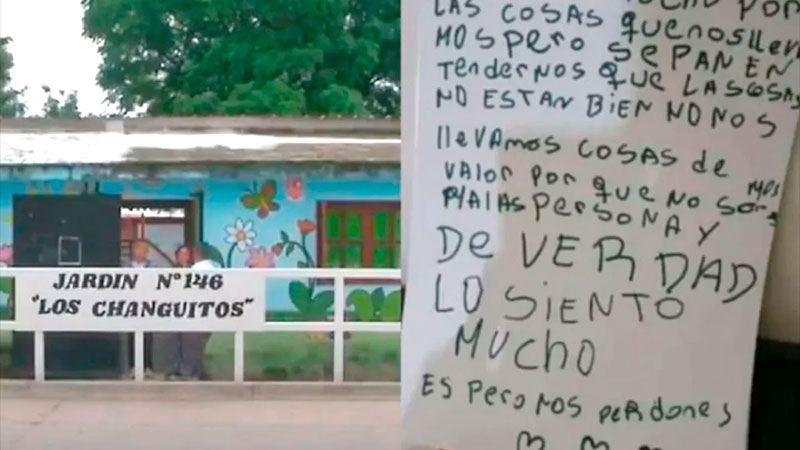 JARDIN N° 146
"LOS CHANGUITOS"
POR
LAS COSAS que nos lleva
MOS pero SEPAN EN
Tendernos que LAS COSAS
NO ESTAN BIEN NO NOS
llevamos cosas de
VALOR por que no somos
MALAS personA y
De VERDAD
LO SIENTO
MUCHO
ES pero NOS perdones